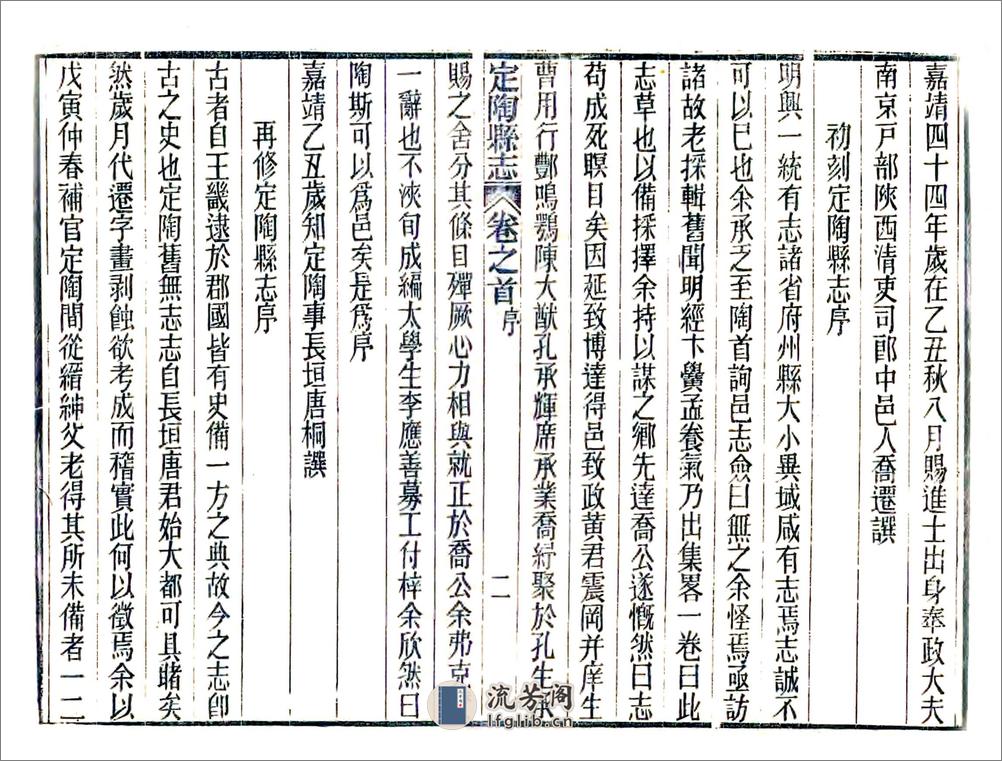 嘉靖四十四年歲在乙丑秋八月賜進士出身奉政大夫
南京戸部陝西清吏司郎中邑人喬遷譔
初刻定陶縣志序
明興一統有志諸省府州縣大小異域咸有志焉志誠不
可以已也余承乏至陶首詢邑志僉曰無之余怪焉亟訪
諸故老採輯舊聞明經卞黌孟養氣乃出集畧一卷曰此
志草也以備採擇余持以謀之鄉先達喬公遂慨然曰志
苟成死瞑目矣因延致博達得邑致政黄君震岡并庠生
曹用行酆鳴鶚陳大猷孔承輝席承業喬紆聚於孔生承
定陶縣志 卷之首 序 二
賜之舍分其條目殫厥心力相與就正於喬公余弗克
一辭也不浹旬成編太學生李應善募工付梓余欣然曰
陶斯可以爲邑矣是爲序
嘉靖乙丑歲知定陶事長垣唐桐譔
再修定陶縣志序
古者自王畿逮於郡國皆有史備一方之典故今之志卽
古之史也定陶舊無志志自長垣唐君始大都可具睹矣
然歲月代遷字畫剥蝕欲考成而稽實此何以徵焉余以
戊寅仲春補官定陶間從縉紳父老得其所未備者一二
流芳阁
lfglib.cn